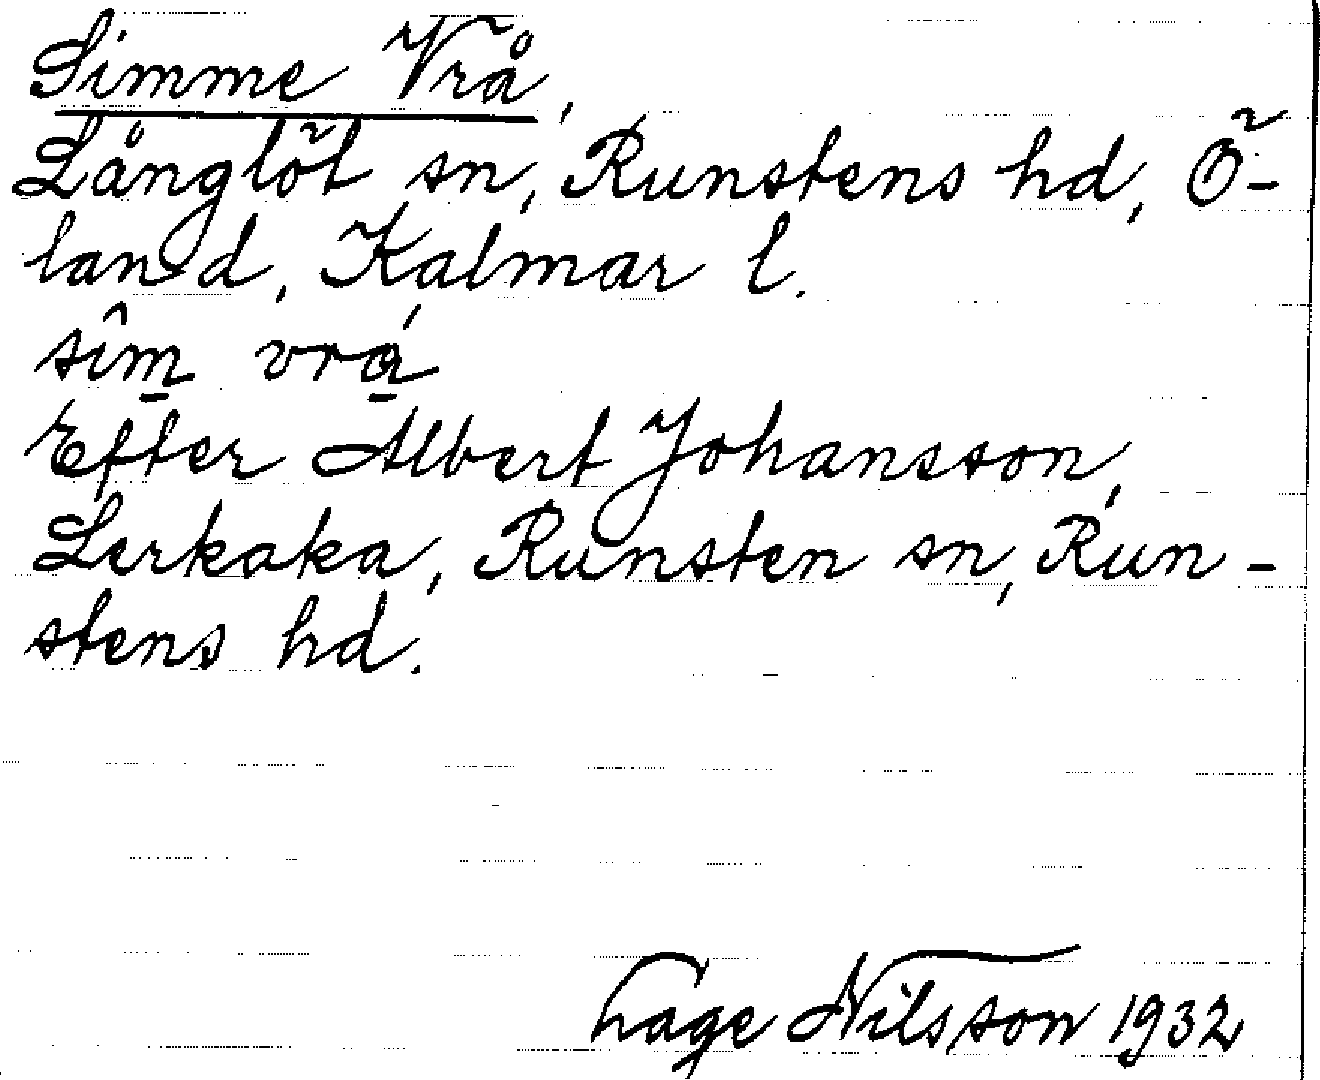 Simme Vrå,
Långlöt sn, Runstens hd, Ö-
land, Kalmar l.
sîm vrá
Efter Albert Johansson,
Lerkaka, Runsten sn, Run-
stens hd.
Lage Nilsson 1932